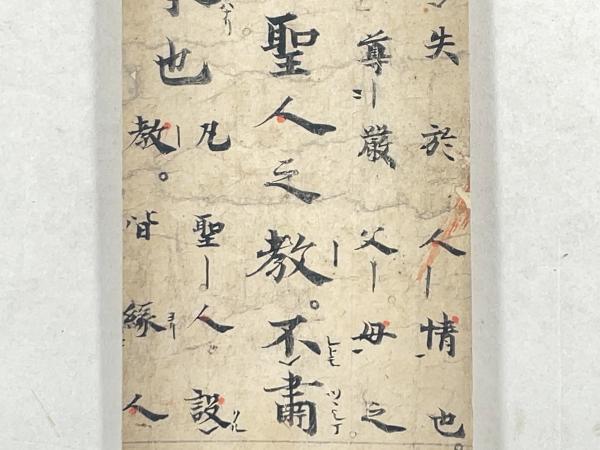 失於人情也。
尊嚴父母之
聖人之教。不肅
也
凡聖人設
教。皆縁人